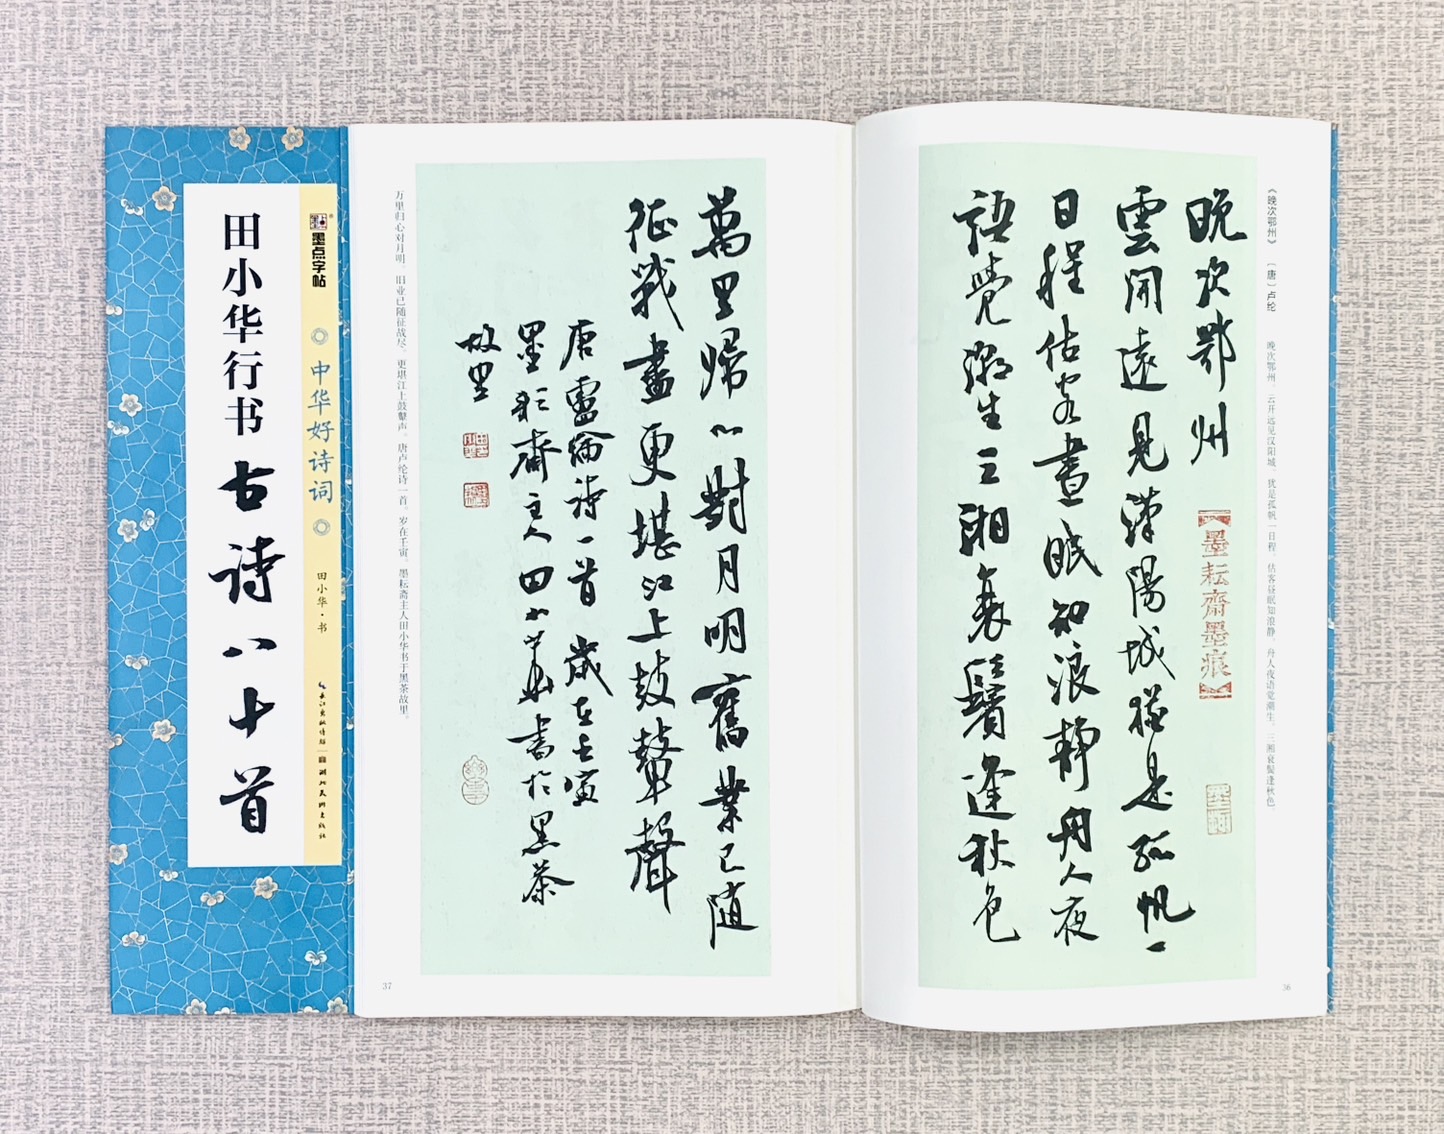 田小华行书
古诗八十首
墨点字帖
中华好诗词
田小华·书
长江出版传媒 湖北美术出版社
《晚次鄂州》 〔唐〕卢纶
晚次鄂州。云开远见汉阳城，犹是孤帆一日程。估客昼眠知浪静，舟人夜语觉潮生。三湘衰鬓逢秋色
晚次鄂州
雲開遠見漢陽城猶是孤帆一
日程估客晝眠知浪静舟人夜
語覺潮生三湘衰鬢逢秋色
墨耘齋墨痕
36
萬里歸心對月明舊業已随
征戰盡更堪江上鼓鼙聲
唐盧綸詩一首歲在壬寅
墨耘齋主人田小華書於黑茶
故里
万里归心对月明。旧业已随征战尽，更堪江上鼓鼙声。唐卢纶诗一首。岁在壬寅，墨耘斋主人田小华书于黑茶故里。
37